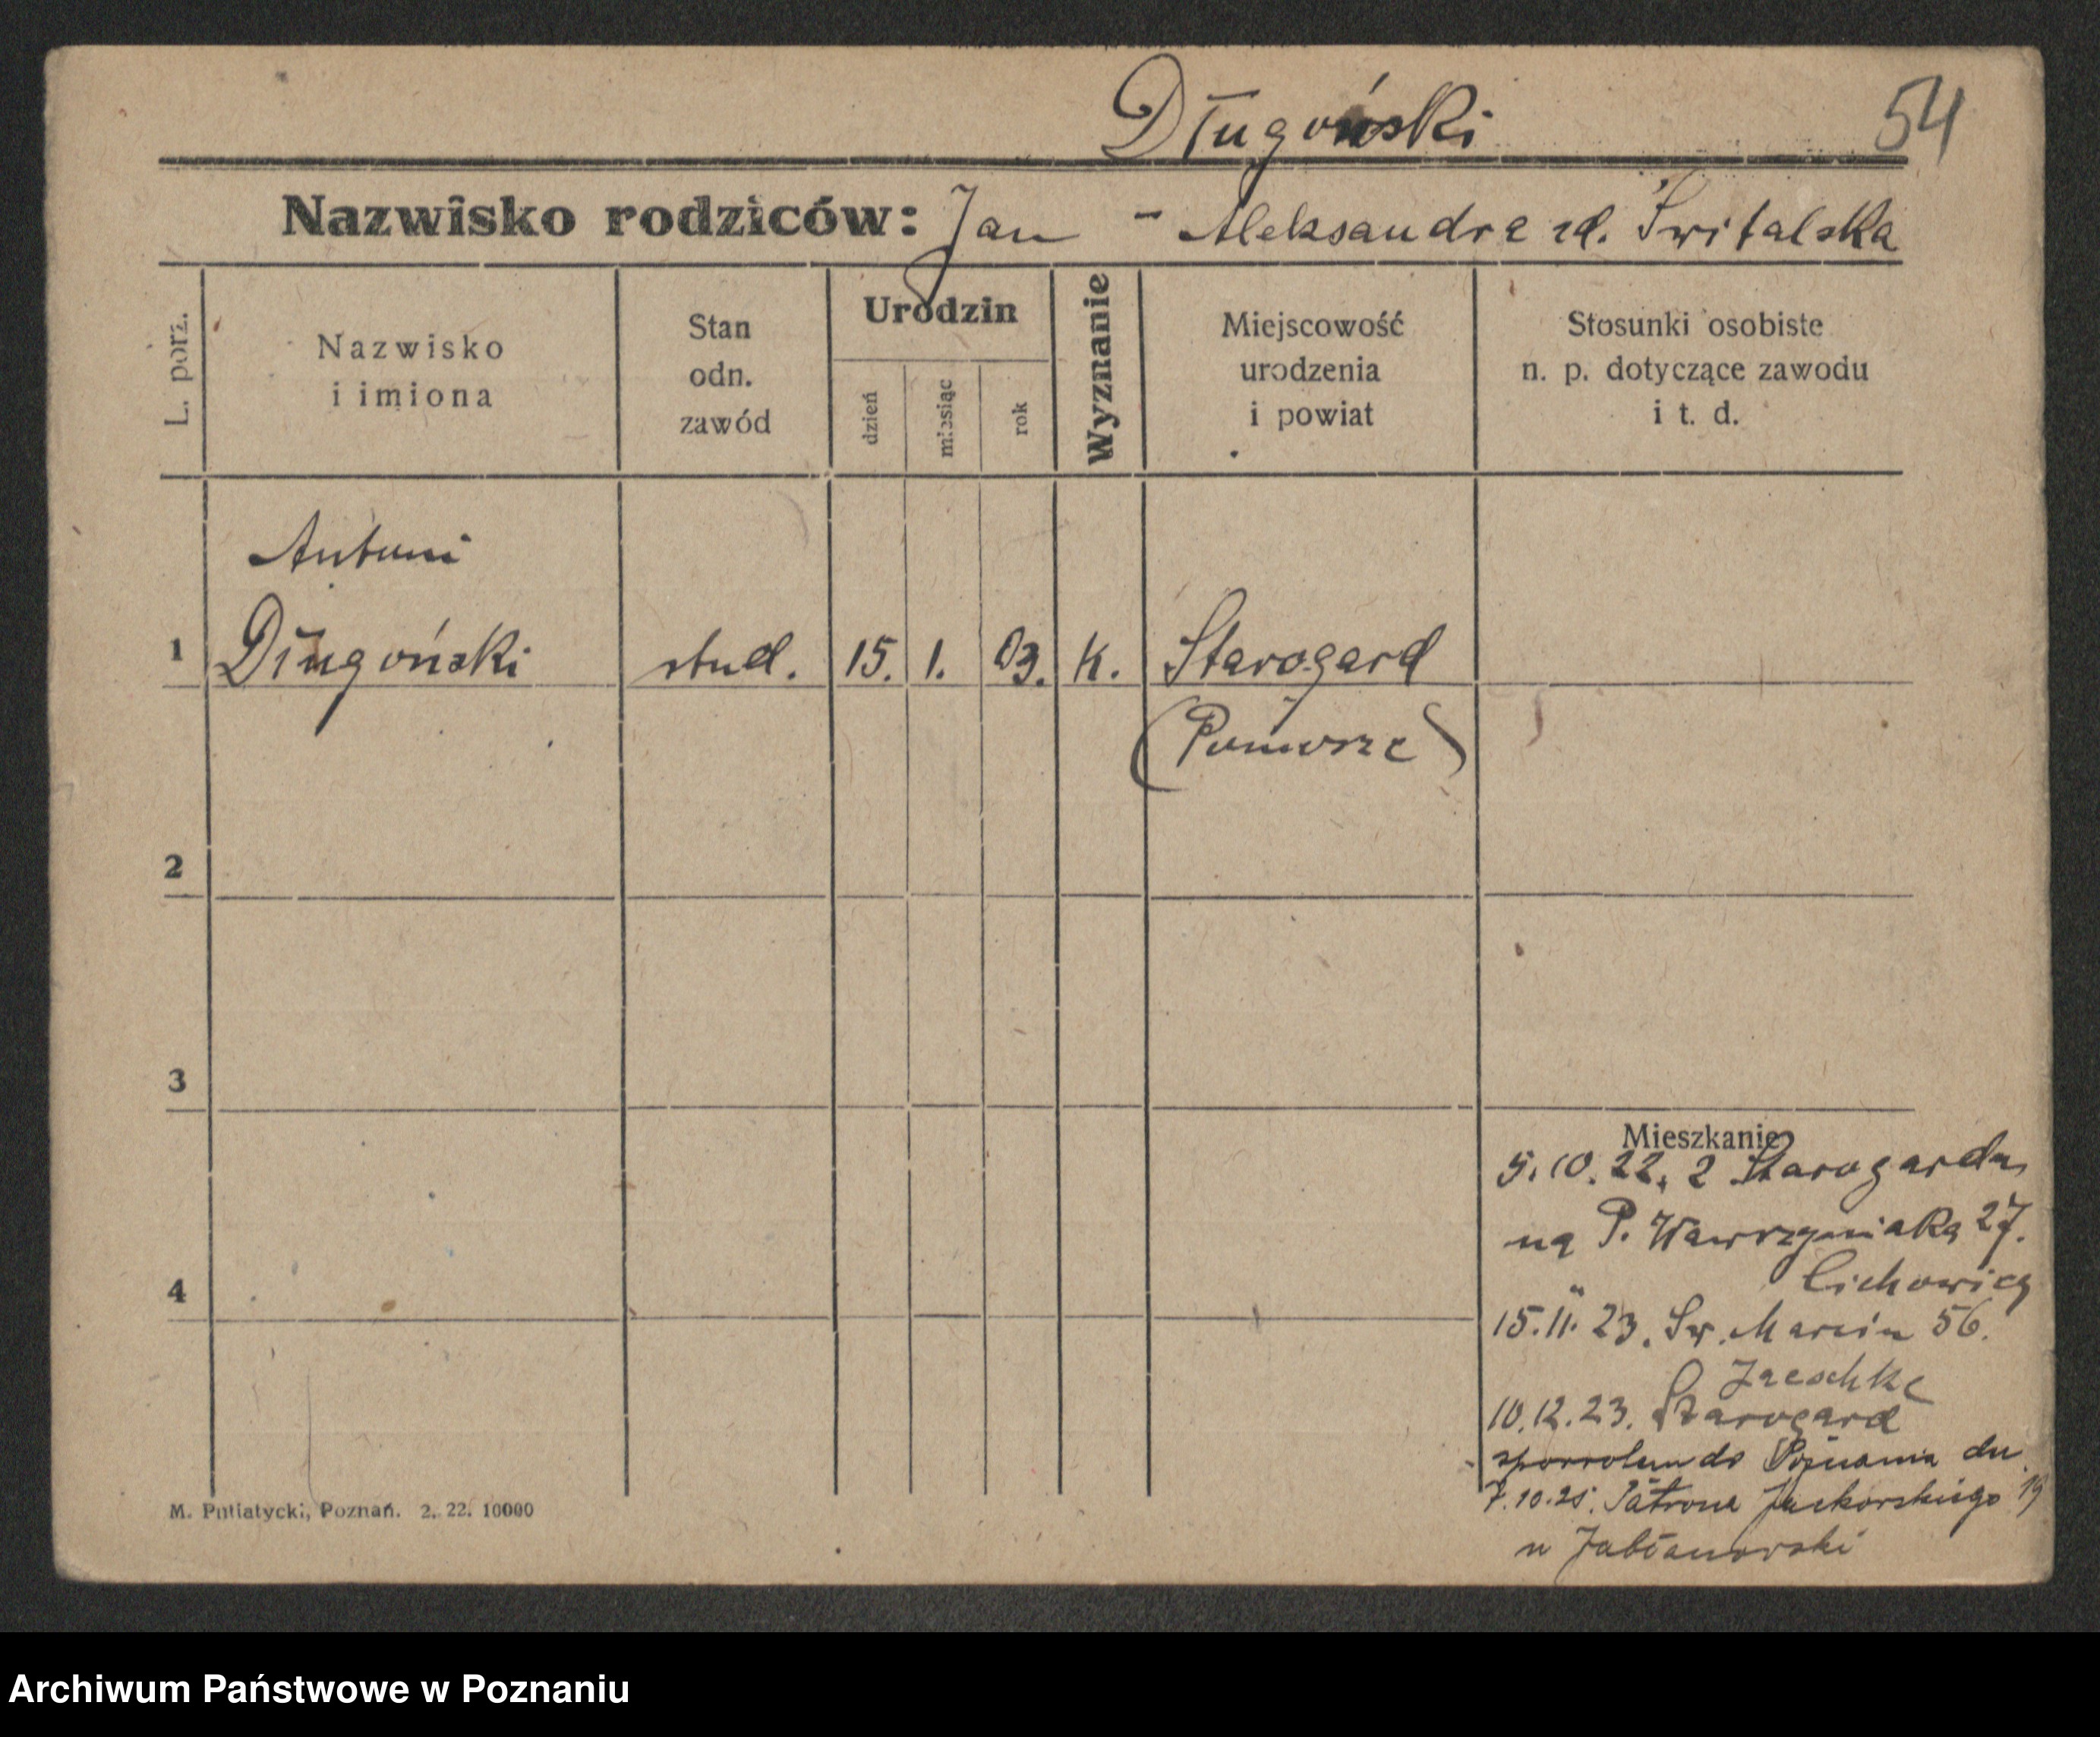 Długoński 54
Nazwisko rodziców: Jan - Aleksandra zd. Świtalska
L. porz.
Nazwisko
i imiona
Stan
odn.
zawód
Urodzin
dzień
miesiąc
rok
Wyznanie
Miejscowość
urodzenia
i powiat
Stosunki osobiste
n. p. dotyczące zawodu
i t. d.
Antoni
1 Długoński stud. 15. 1. 03. K. Starogard
(Pomorze)
2
3
4
Mieszkanie
5.10.22. z Starogardu
na P. Wawrzyniaka 27.
Cichowicz
15.11.23. Św. Marcin 56.
Jaeschke
10.12.23. Starogard
do Poznania dn.
7.10.25. Patrona Jackowskiego 19
u Jabłanowski
M. Putiatycki, Poznań. 2. 22. 10000
Archiwum Państwowe w Poznaniu